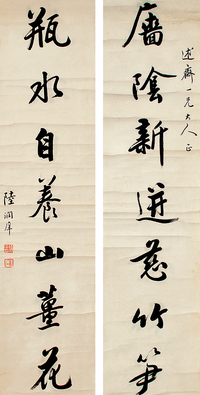 廧陰新迸慈竹筍
述齋一兄大人正
瓶水自養山薑花
陸潤庠